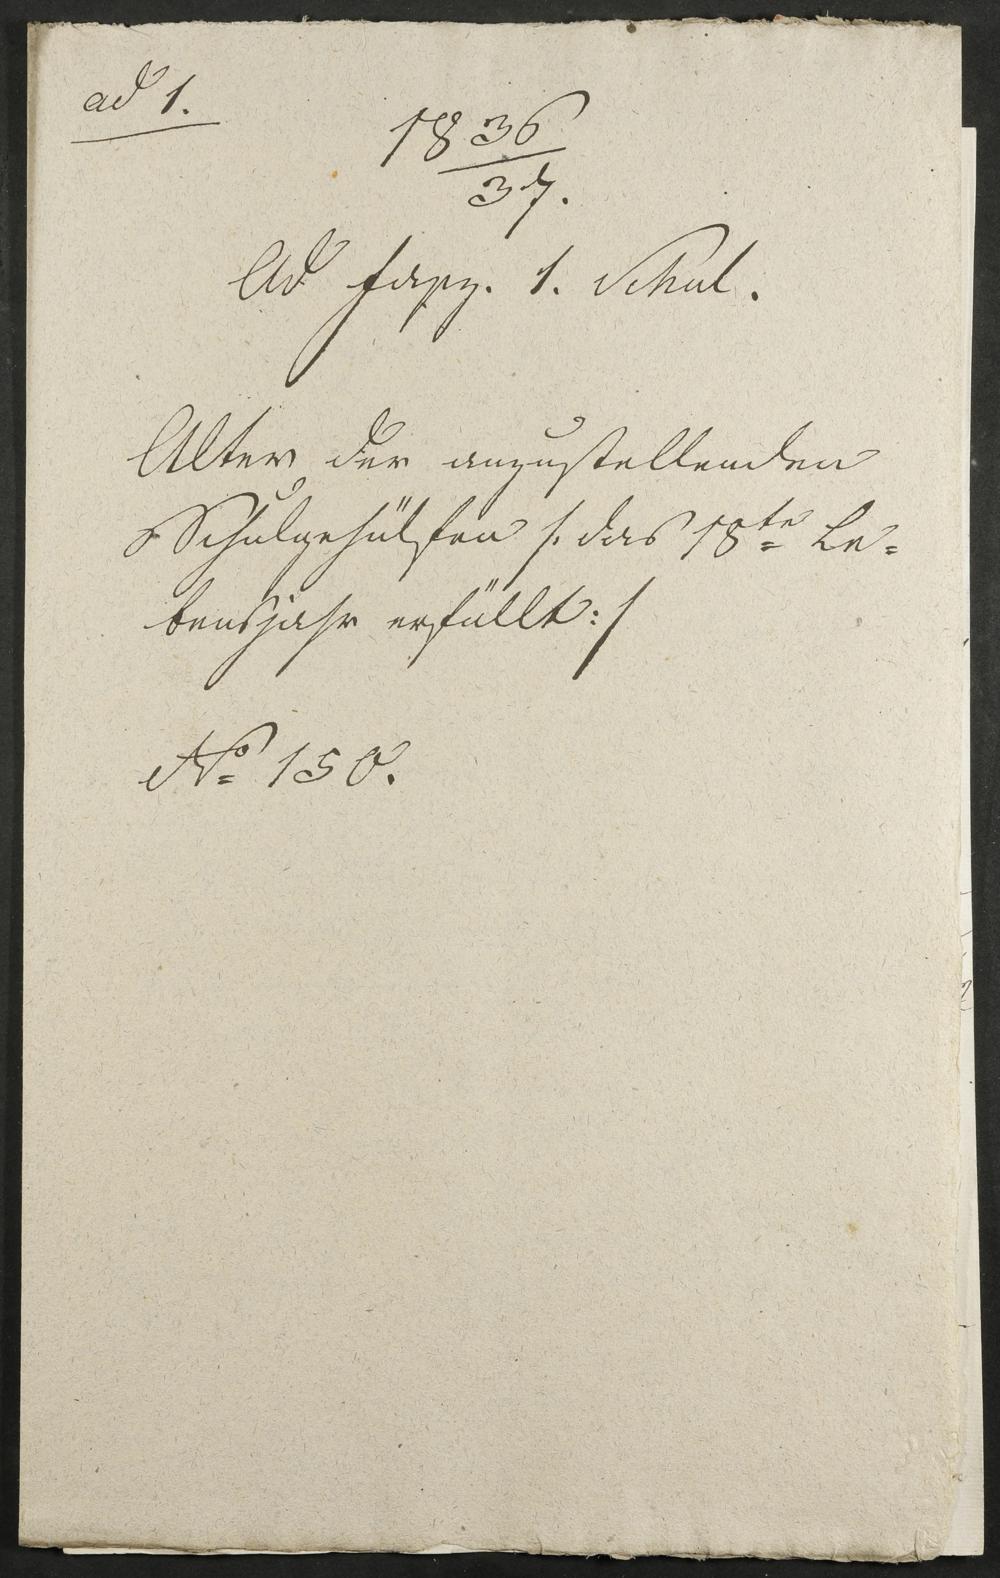 ad 1.
18 36/37.
Ad fasz. 1. Schul.
Alter der anzustellenden
Schulgehülfen /: das 18te Le=
bensjahr erfüllt :/
No 150.